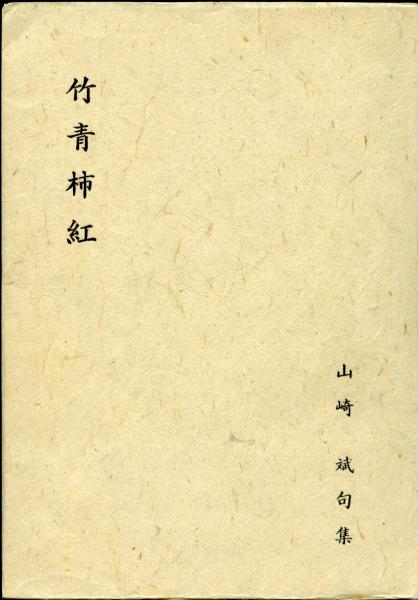 竹青柿紅
山崎 斌句集